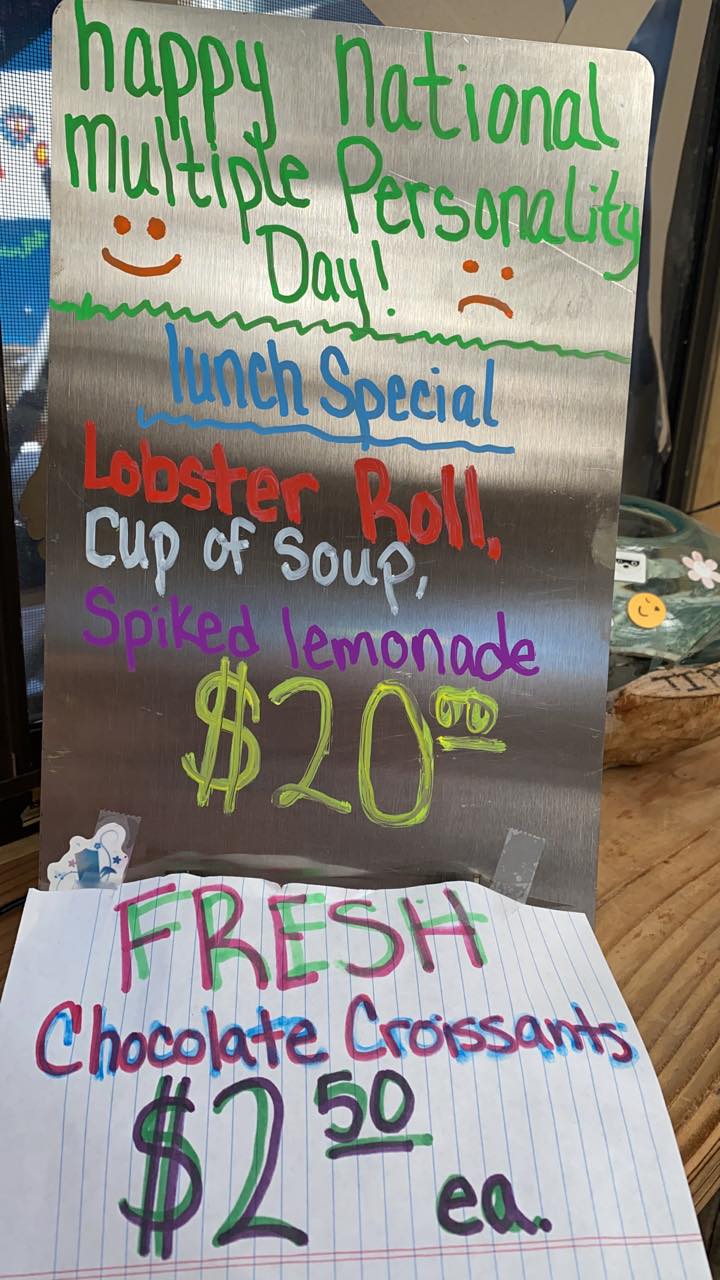 happy National
Multiple Personality
Day!
lunch Special
Lobster Roll,
Cup of Soup,
Spiked lemonade
$20.00
FRESH
Chocolate Croissants
$2 50
ea.